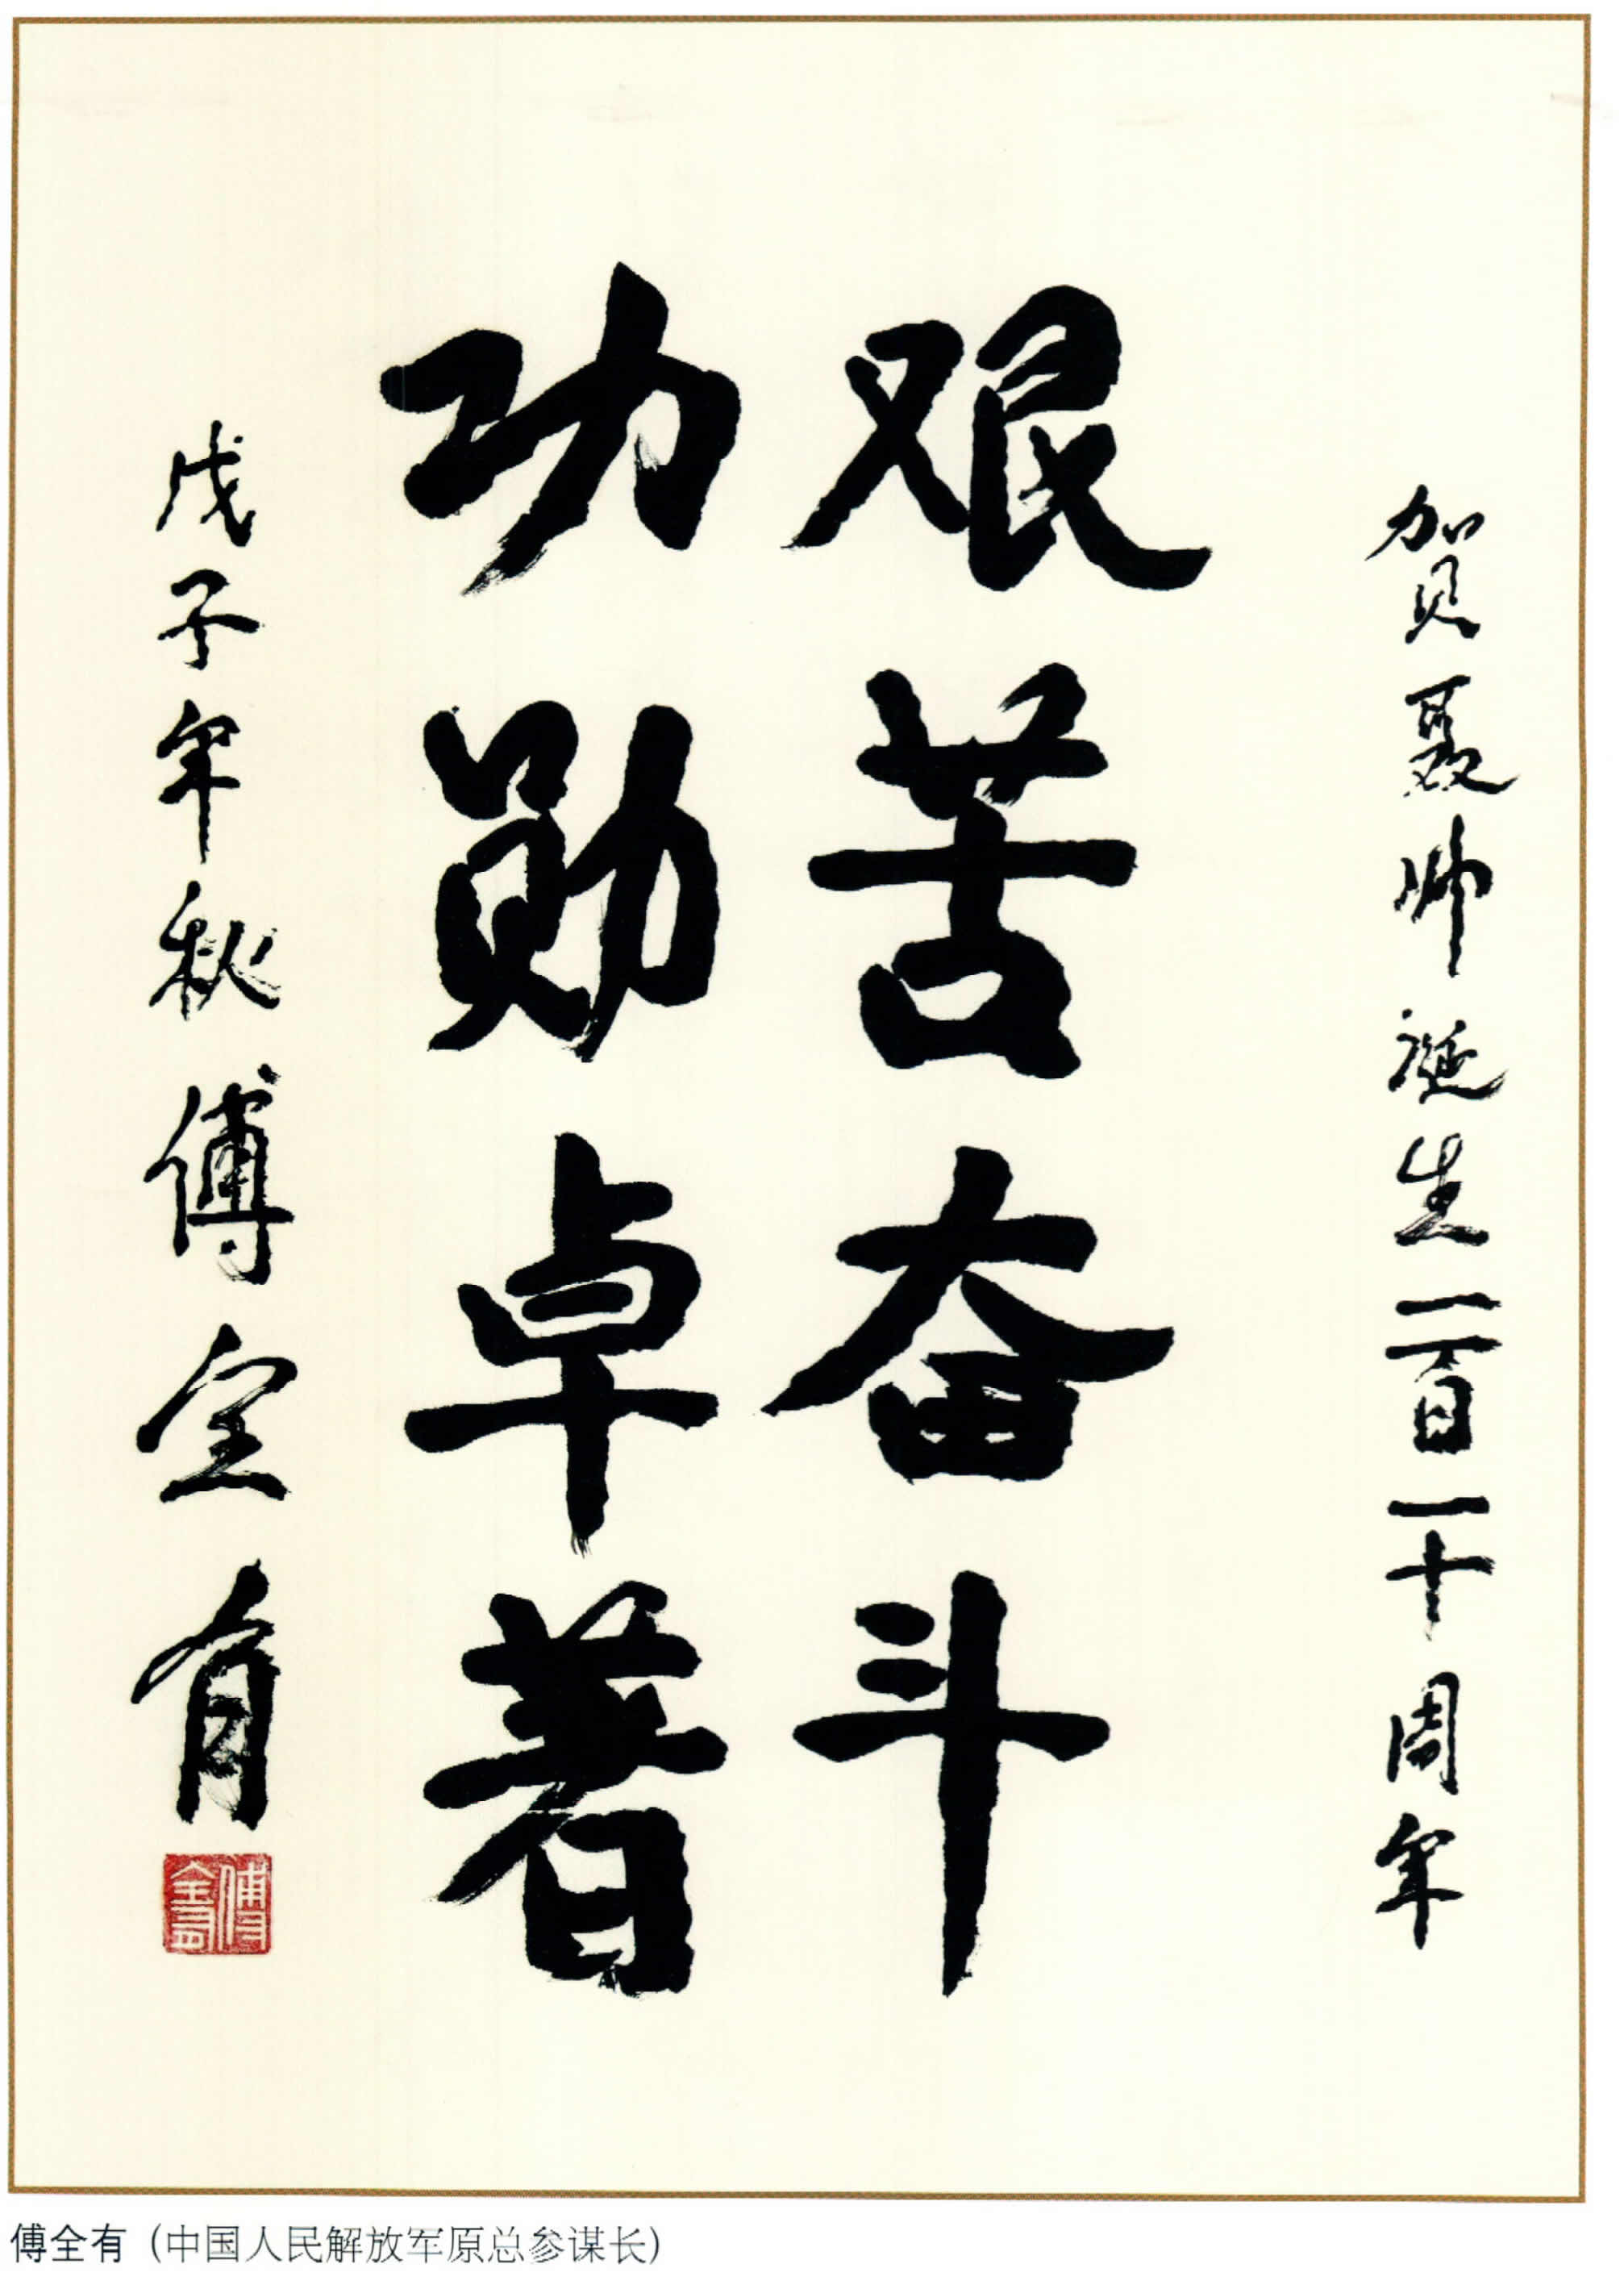 贺聂帅诞生一百一十周年
艰苦奋斗
功勋卓著
戊子年秋 傅全有
傅全有
傅全有（中国人民解放军原总参谋长）